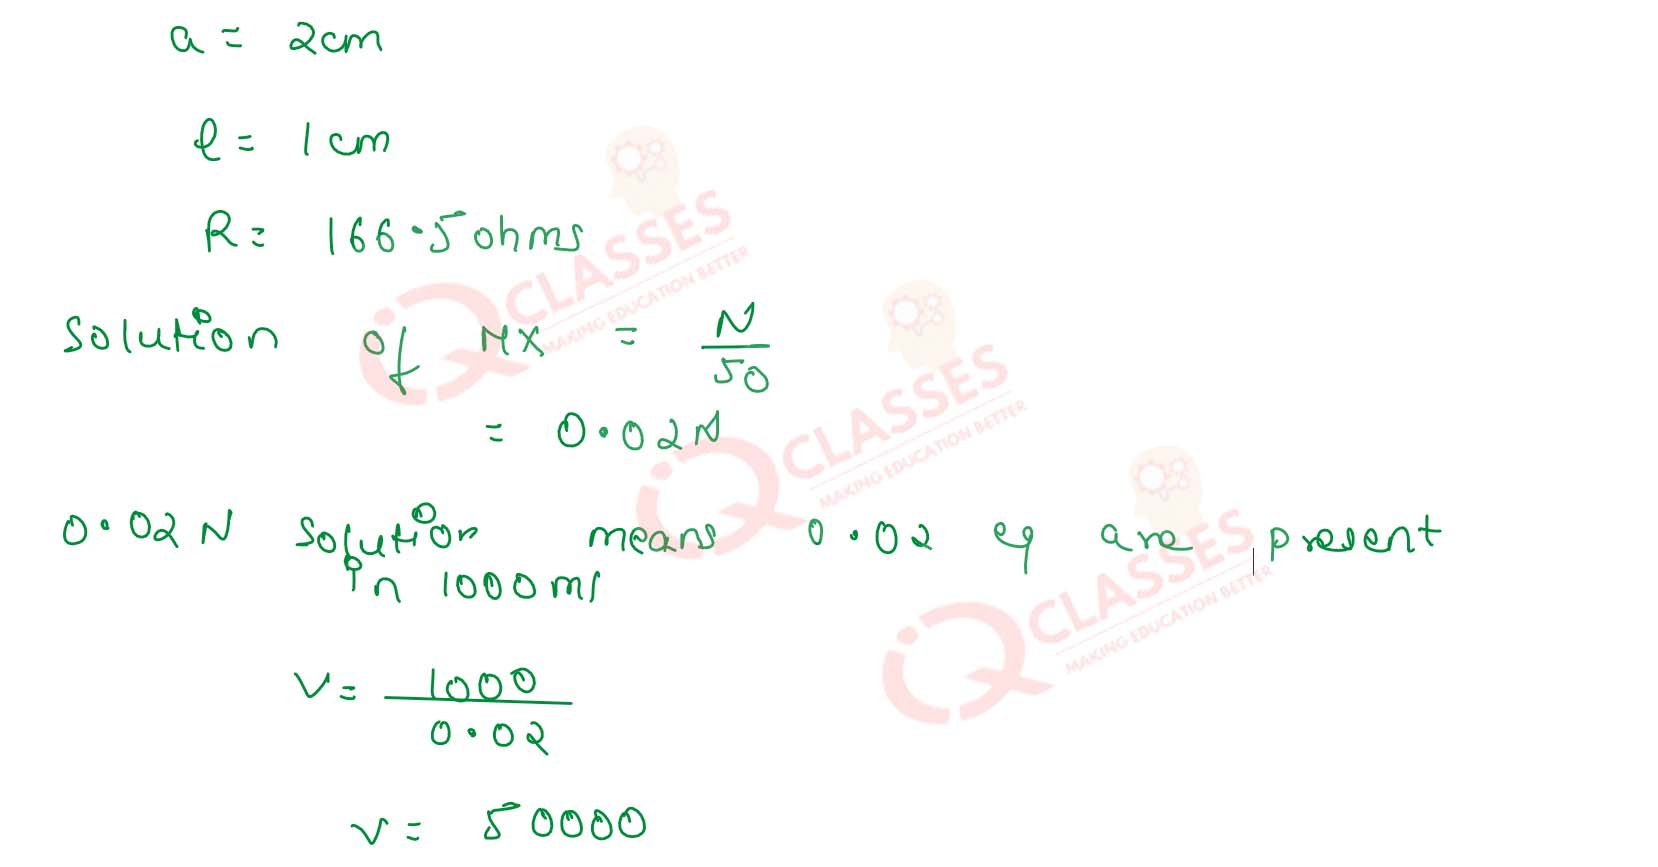 a = 2cm
l = 1cm
R = 166.5 ohms
Solution of MX = N/50
= 0.02N
0.02 N Solution means 0.02 eq are present
in 1000 ml
V = 1000/0.02
V = 50000
iQ CLASSES
MAKING EDUCATION BETTER
iQ CLASSES
MAKING EDUCATION BETTER
iQ CLASSES
MAKING EDUCATION BETTER